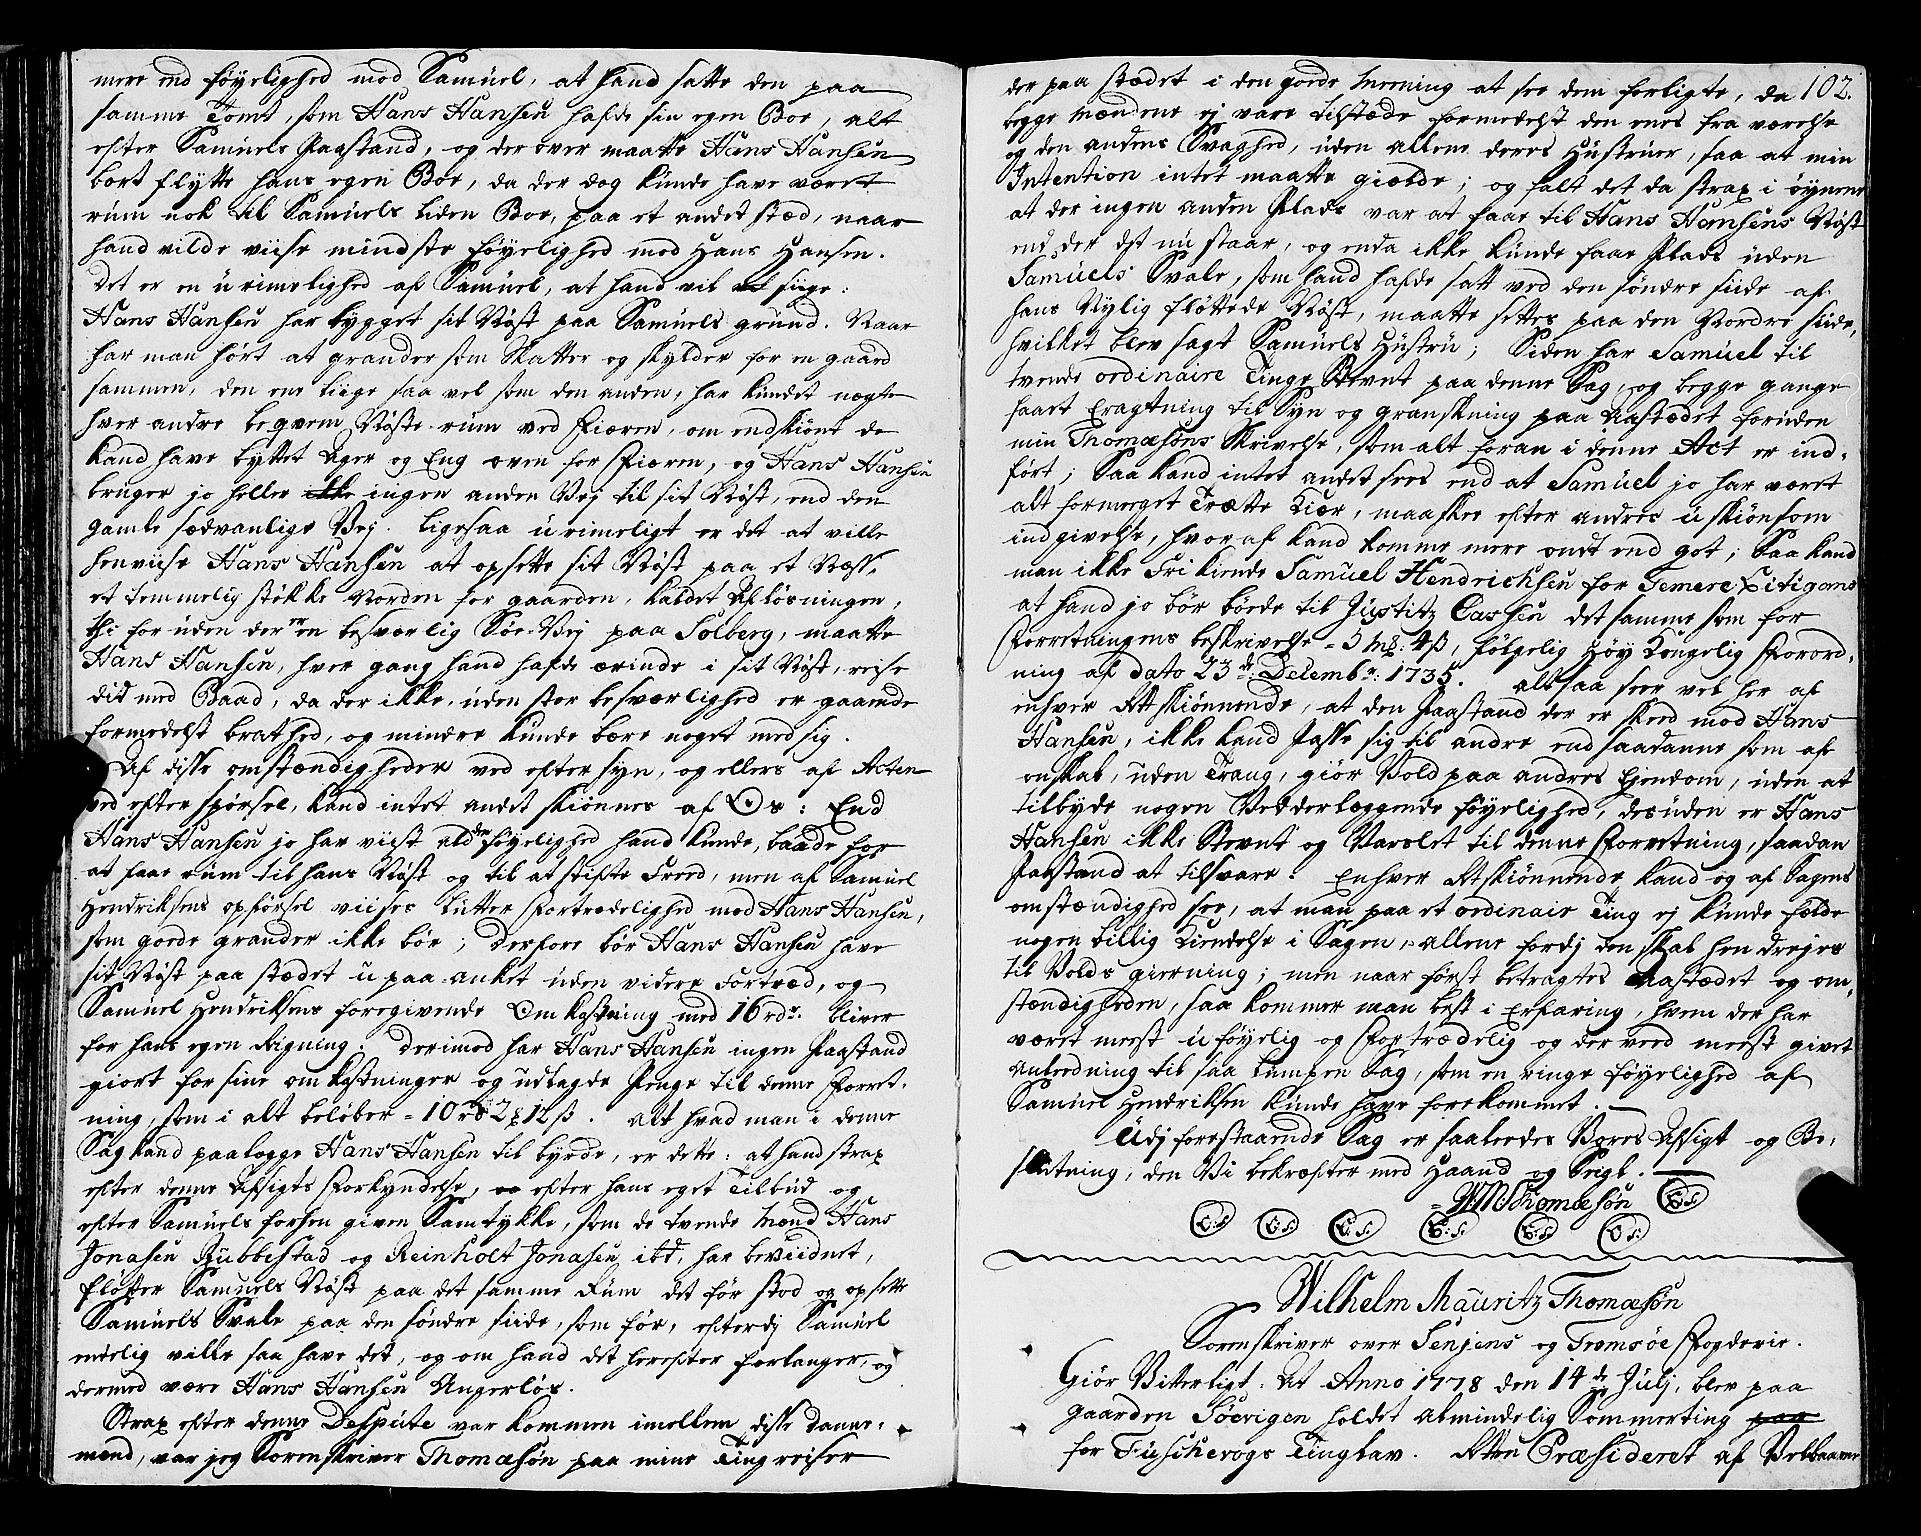 mere end føyelighed mod Samuel, at hand satte den paa
samme Tomt, som Hans Hansen hafde sin egen Boe, alt
efter Samuels Paastand, og der over maatte Hans Hansen
bort flytte hans egen Boe, da der dog kunde have været
rum nok til Samuels liden Boe, paa et andet stæd, naar
hand vilde viise mindste føyelighed mod Hans Hansen.
Det er en urimelighed af Samuel, at hand vil siige:
Hans Hansen har bygget sit Nøst paa Samuels grund. Naar
har man hørt at grander som Skatter og skylder for en gaard
sammen, den ene liige saa vel som den anden, har kundet nægte
hver andre beqvem Nøste-rum ved Fiæren, om endskiønt de
kand have byttet Ager og Eng oven for Fiæren, og Hans Hansen
bruger jo heller ikke ingen anden Vej til sit Nøst, end den
gamle sædvanlige Vej. Ligesaa urimeligt er det at ville
henviise Hans Hansen at opsette sit Nøst paa et Næss,
et temmelig støkke Norden for gaarden, kaldet Afløsningen,
thi for uden der er en besværlig Søe-Vej paa Solberg, maatte
Hans Hansen, hver gang hand hafde ærinde i sit Nøst, reise
did med Baad, da der ikke uden stor besværlighed er gaaende
formedelst brathed, og mindre kunde bære noget med sig.
Af disse omstændigheder ved eftersyn, og ellers af Acten
ved efter spørsel, kand intet andet skiønnes af Os: End
Hans Hansen jo har viist ald den føyelighed hand kunde, baade for
at faae rum til hans Nøst og til at stifte Freed, men af Samuel
Hendriksens opførsel viises lutter Fortrædelighed mod Hans Hansen,
som goede grander ikke bør; Derfore bør Hans Hansen have
sit Nøst paa stædet upaa-anket uden videre Fortræd, og
Samuel Hendriksens foregivende Omkostning med 16 rdr. bliver
for hans egen Rigning. Derimod har Hans Hansen ingen Paastand
giort for sine omkostninger og udlagde Penge til denne Forret-
ning, som i alt beløber = 10 rd 2 ƺ 12 ß. Alt hvad man i denne
Sag kand paalegge Hans Hansen til byrde, er dette: at hand strax
efter denne Afsigts Forkyndelse, efter hans eget Tilbud og
efter Samuels forhen given Samtykke, som de tvende Mænd Hans
Jonasen Rubbestad og Reinholt Jonasen ibd, har beviidnet,
fløtter Samuels Nøst paa det samme Rum det før stod og opsette
Samuels Svale paa den søndre siide, som før, efterdj Samuel
endelig ville saa have det, og om hand det herefter forlanger, og
dermed være Hans Hansen Angerløs.
Strax efter denne Despute var kommen imellem disse Danne-
mænd, var jeg Sorenskriver Thomæsøn paa mine Tingreiser
102.
der paa stædet i den goede Meening at see dem forligte, da
begge Mændene ej vare tilstæde formedelst den enes fra værelse
og den andens Svaghed, uden allene deres Hustruer, saa at min
Intention intet maatte gielde; og falt det da strax i øynene
at der ingen anden Plads var at faae til Hans Hansens Nøst
end der det nu staar, og enda ikke kunde faae Plads uden
Samuels Svale, som hand hafde satt ved den søndre siide af
hans Nylig fløttede Nøst, maatte settes paa den Nordre siide,
hvilket blev sagt Samuels Hustru; Siden har Samuel til
tvende ordinaire Tinge Stevnt paa denne Sag, og begge gange
faaet Eragtning til Syn og granskning paa Aastædet foruden
min Thomæsøns Skrivelse, som alt foran i denne Act er ind-
ført; Saa kand intet andet sees end at Samuel jo har været
alt formeget Trætte Kier, maaskee efter andres uskiønsom
indgivelse, hvoraf kand komme mere ondt end got; Saa kand
man ikke Frikiende Samuel Hendrichsen for Temere Litigans
at hand jo bør bøede til Justitz Cassen det samme som for
Forretningens beskrivelse = 3 mß: 4ß, følgelig Høy Kongelig Forord-
ning af dato 23de Decembr: 1735. Altsaa seer vel her af
enhver Retskiønnende, at den Paastand der er skeed mod Hans
Hansen, ikke kand Passe sig til andre end saadanne som af
onskab, uden Trang, giør Vold paa andres Ejendom, uden at
tilbyde nogen Vedderleggende føyelighed, desuden er Hans
Hansen ikke Stevnt og Varslet til denne Forretning, saadan
Paastand at tilsvare. Enhver Retskiønnende kand og af Sagens
omstændighed see, at man paa et ordinair Ting ej kunde fælde
nogen billig Kiendelse i Sagen, allene fordj den skal hendrejes
til Volds gierning; men naar først betragtes Aastædet og om-
stændigheden, saa kommer man best i Erfaring, hvem der har
været meest uføyelig og Fortrædelig og derved meest givet
anleedning til saa lumpen Sag, som en ringe føyelighed af
Samuel Hendriksen kunde have forekommet.
Udj forestaaende Sag er saaleedes Vores Afsigt og Be-
slutning, den Vi bekræfter med Haand og Seigl.
W.M. Thomæsøn (L.S.)
(L.S.) (L.S.) (L.S.) (L.S.) (L.S.) (L.S.)
Wilhelm Mauritz Thomæsøn
Sorenskriver over Senjens og Tromsøe Fogderie.
Giør Vitterligt: At Anno 1778 den 14de Julj, blev paa
gaarden Soevigen holdet almindelig Sommerting paa
for Fuscherogs Tinglav. Retten Præsideret af Velbaarne